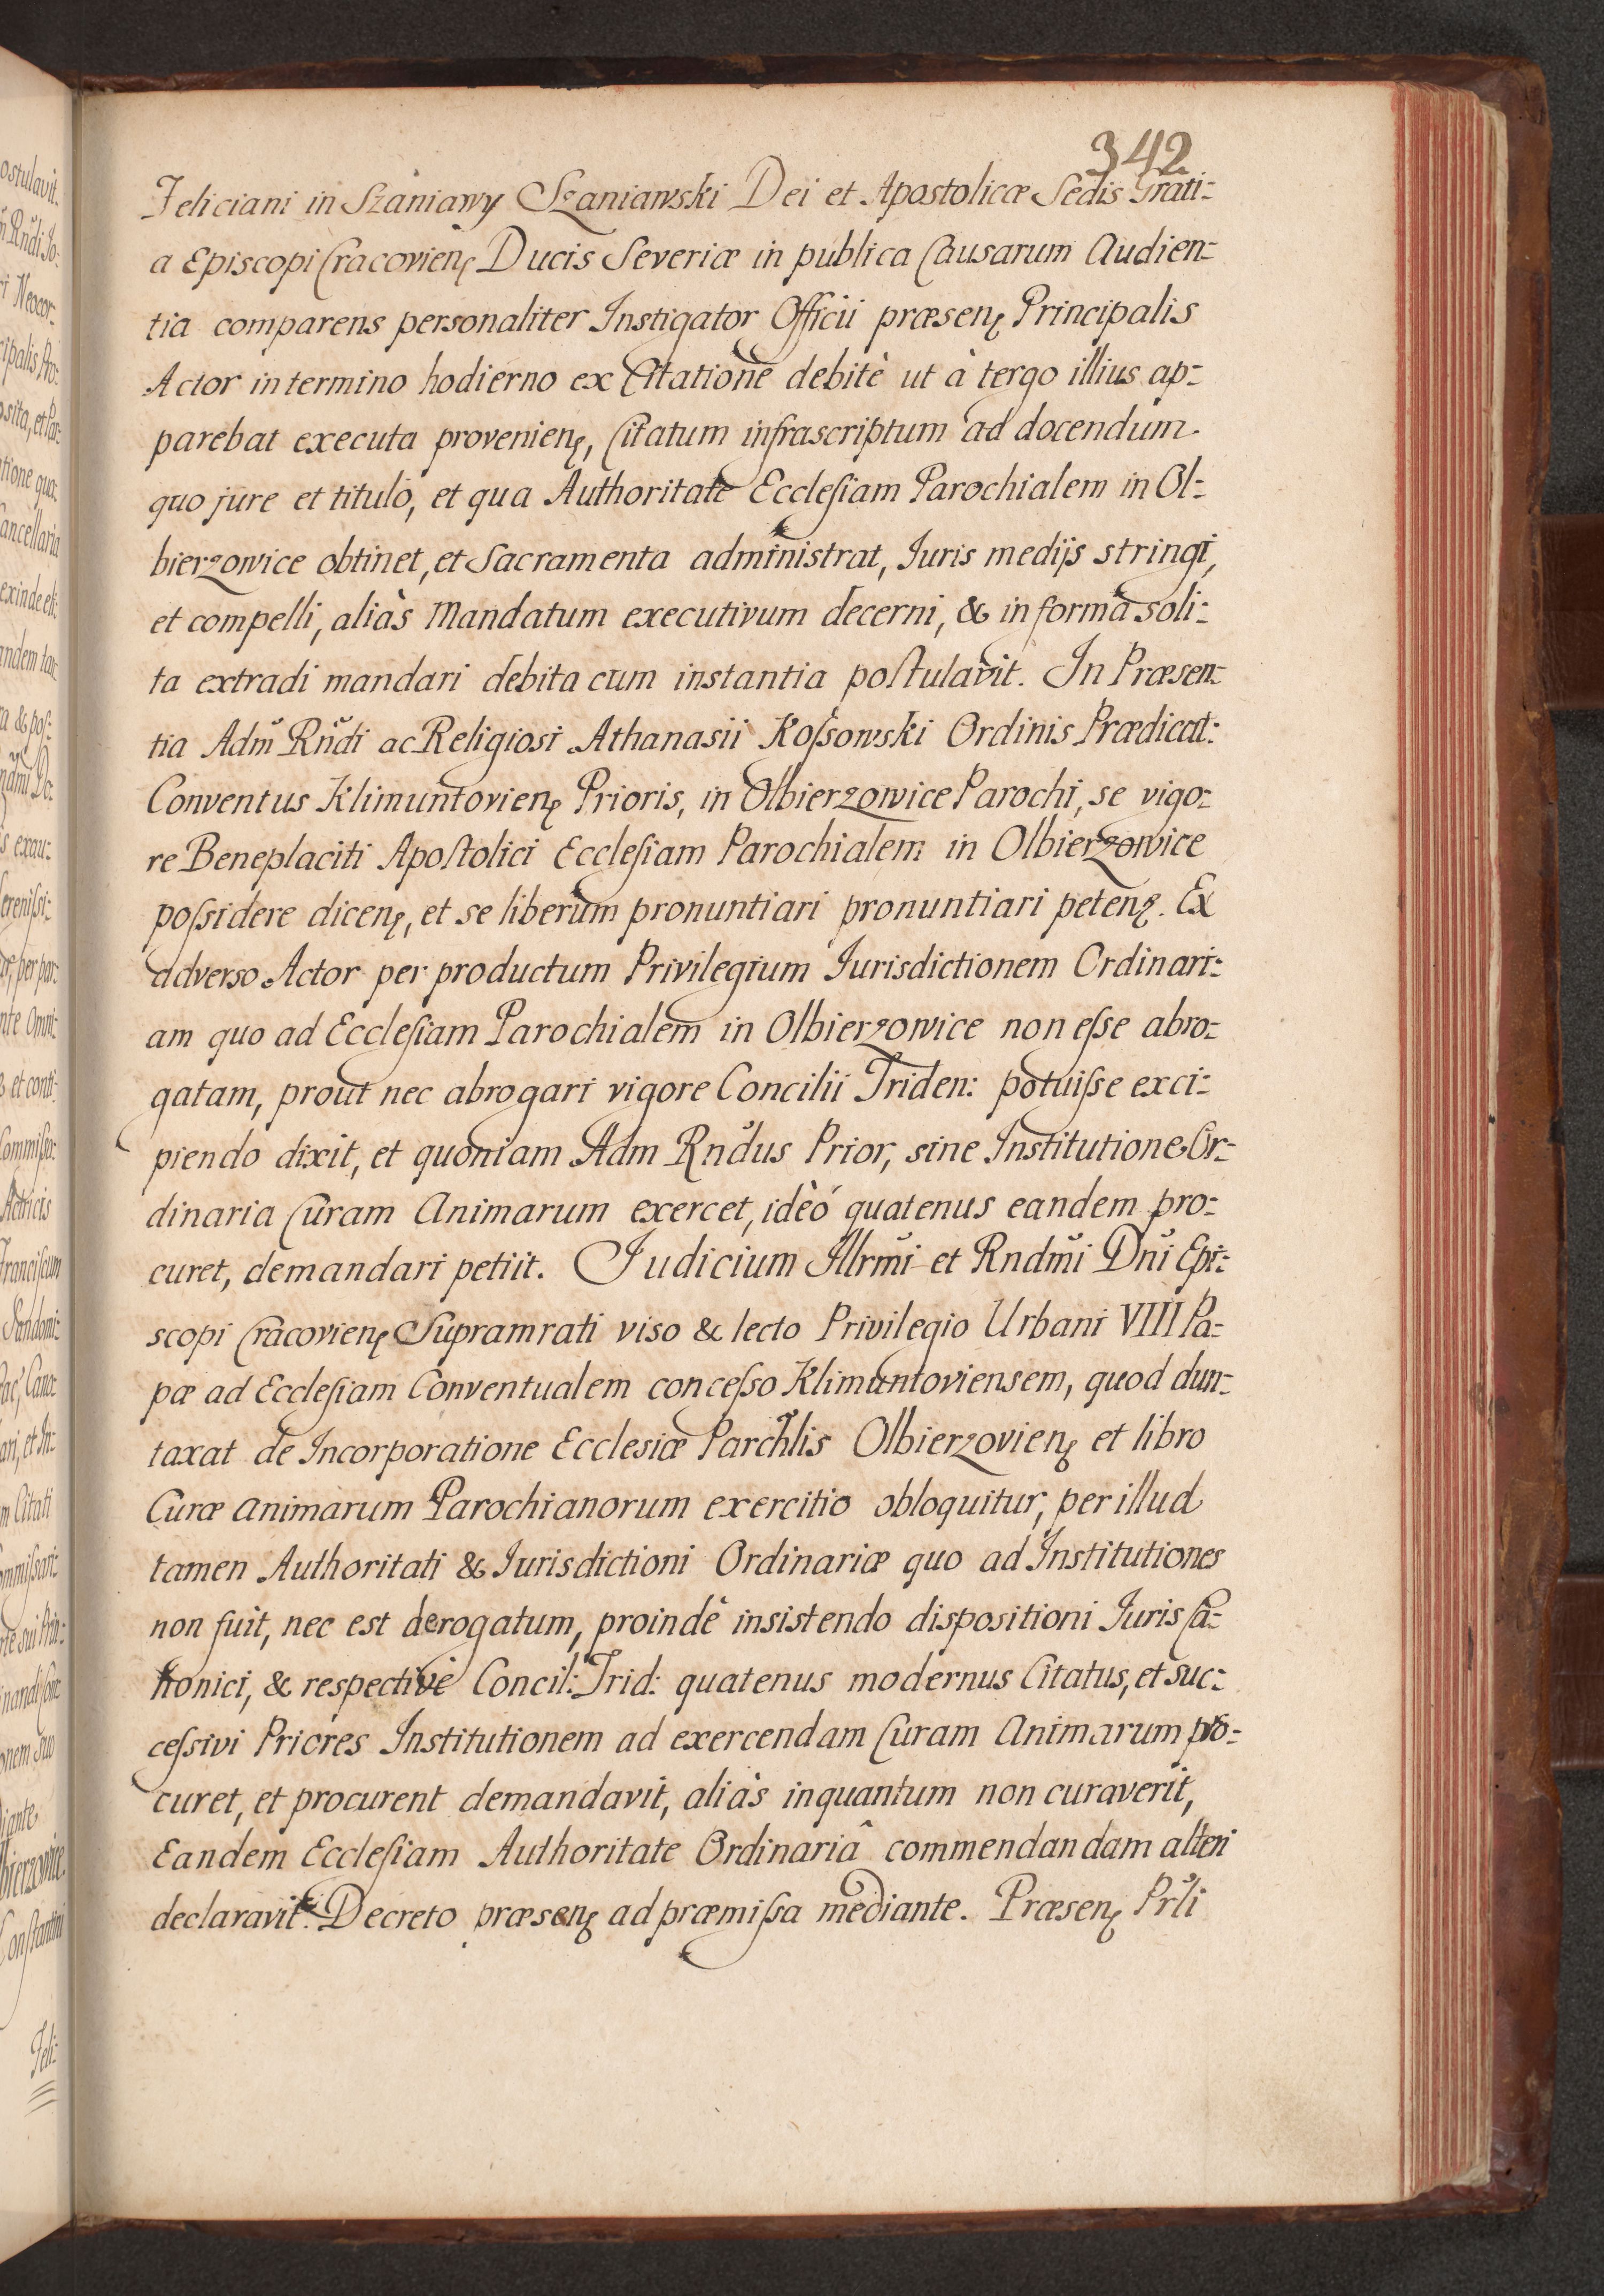 342
Feliciani in Szaniawy Szaniawski Dei et Apostolicæ Sedis Grati:
a Episcopi Cracovienę Ducis Severiæ in publica Causarum Audien:
tia comparens personaliter Instigator Officii præsenę Principalis
Actor in termino hodierno ex Citatione debitè ut à tergo illius ap:
parebat executa provenienę, Citatum infrascriptum ad docendum.
quo jure et titulo, et qua Authoritate Ecclesiam Parochialem in Ol:
bierzowice obtinet, et Sacramenta administrat, Iuris medijs stringi,
et compelli, aliàs Mandatum executivum decerni, & in forma soli:
ta extradi mandari debita cum instantia postulavit. In Præsen:
tia Adm̃ Rñdi ac Religiosi Athanasii Kossowski Ordinis Prædicat:
Conventus Klimuntovienę Prioris, in Olbierzowice Parochi, se vigo:
re Beneplaciti Apostolici Ecclesiam Parochialem in Olbierzowice
possidere dicenę, et se liberum pronuntiari pronuntiari petenę. Ex
adverso Actor per productum Privilegium Iurisdictionem Ordinari:
am quo ad Ecclesiam Parochialem in Olbierzowice non esse abro:
gatam, prout nec abrogari vigore Concilii Triden: potuisse exci:
piendo dixit, et quoniam Adm Rñdus Prior, sine Institutione Or:
dinaria Curam Animarum exercet, ideò quatenus eandem pro:
curet, demandari petiit. Judicium Illrm̃i et Rndm̃i Dñi Epi:
scopi Cracovienę Supramrati viso & lecto Privilegio Urbani VIII Pa:
pæ ad Ecclesiam Conventualem concesso Klimuntoviensem, quod dun:
taxat de Incorporatione Ecclesiæ Parchl̃is Olbierzovienę et libro
Curæ animarum Parochianorum exercitio obloquitur, per illud
tamen Authoritati & Iurisdictioni Ordinariæ quo ad Institutiones
non fuit, nec est derogatum, proindè insistendo dispositioni Iuris Ca:
nonici, & respectivè Concil: Trid: quatenus modernus Citatus, et suc:
cessivi Priores Institutionem ad exercendam Curam Animarum pro:
curet, et procurent demandavit, aliàs inquantum non curaverit,
Eandem Ecclesiam Authoritate Ordinariâ commendandam alteri
declaravit. Decreto præsenę ad præmissa mediante. Præsenę Pr̃li